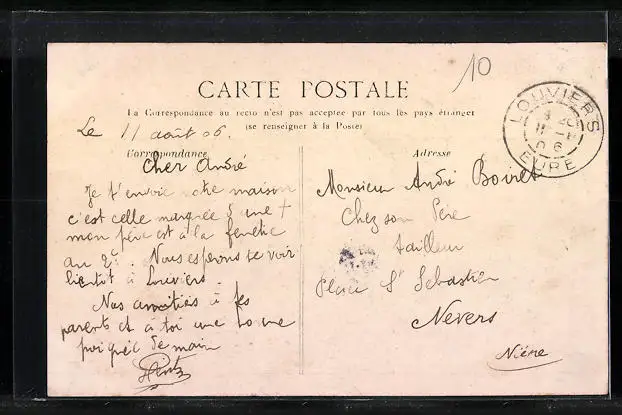 10
CARTE POSTALE
La Correspondance au recto n'est pas acceptée par tous les pays étranger
(se renseigner à la Poste)
Le 11 août 06.
Correspondance
Cher André
Je t'envoie notre maison
c'est celle marquée d'une +
mon père est à la fenêtre
au 2e. Nous espérons te voir
bientôt à Louviers.
Nos amitiés à tes
parents et à toi une bonne
poignée de main
Adresse
Monsieur André Bouret
Chez son Père
tailleur
Place St Sébastien
Nevers
Nièvre
LOUVIERS
EURE